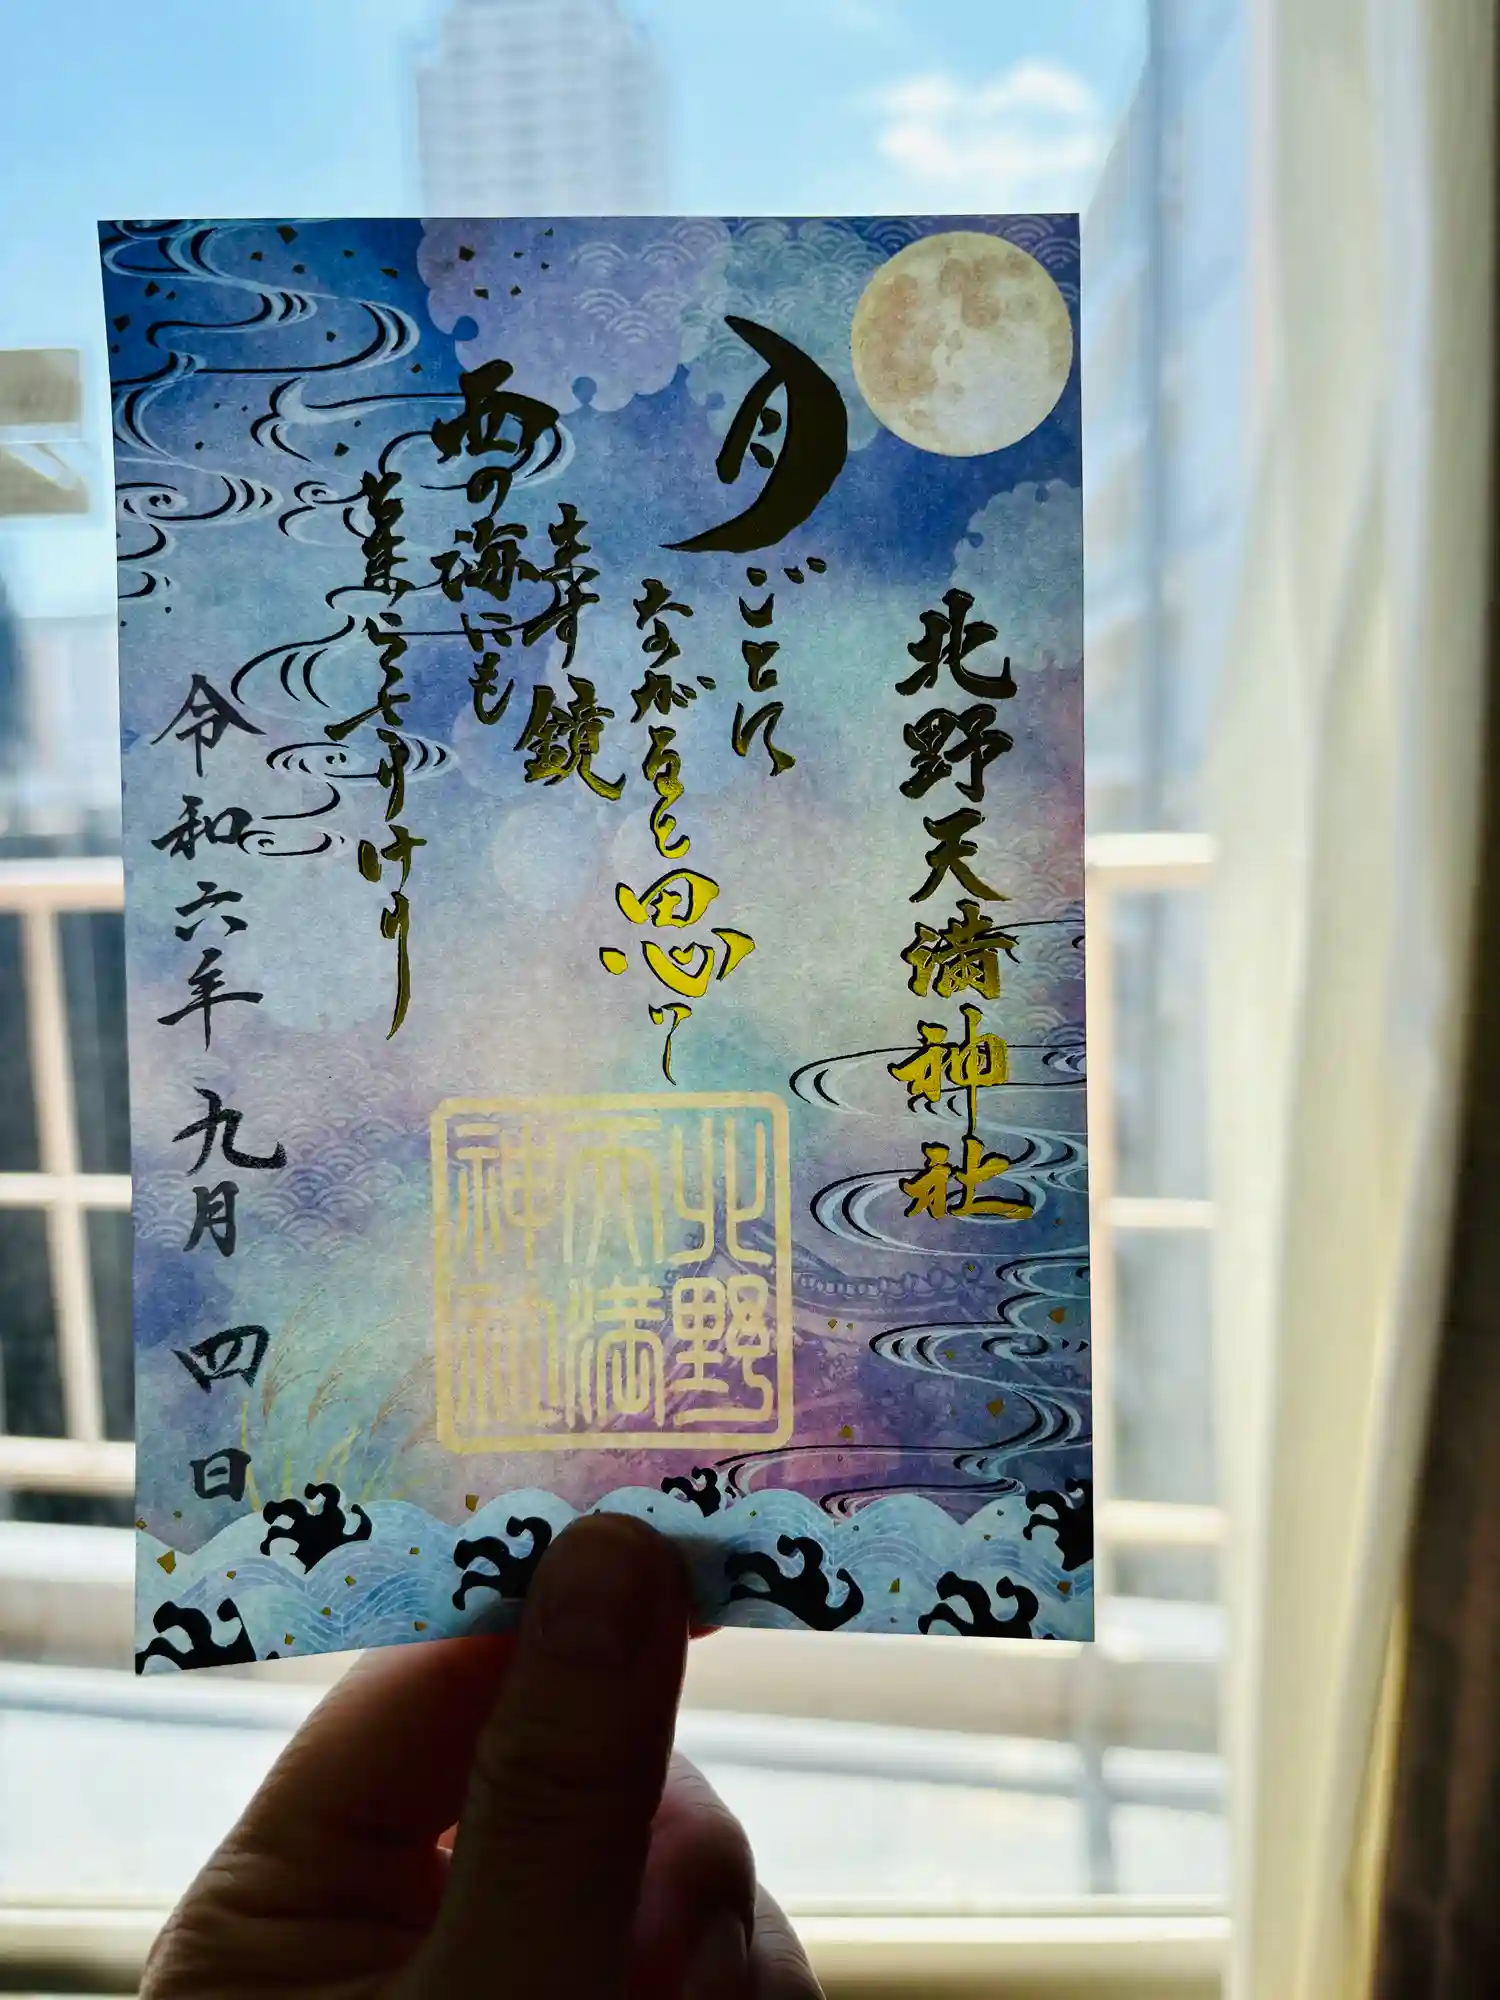 北野天満神社
月ごとに
ながると思
ます鏡
西の海にも
けり
令和六年九月四日
北野
天満
神社